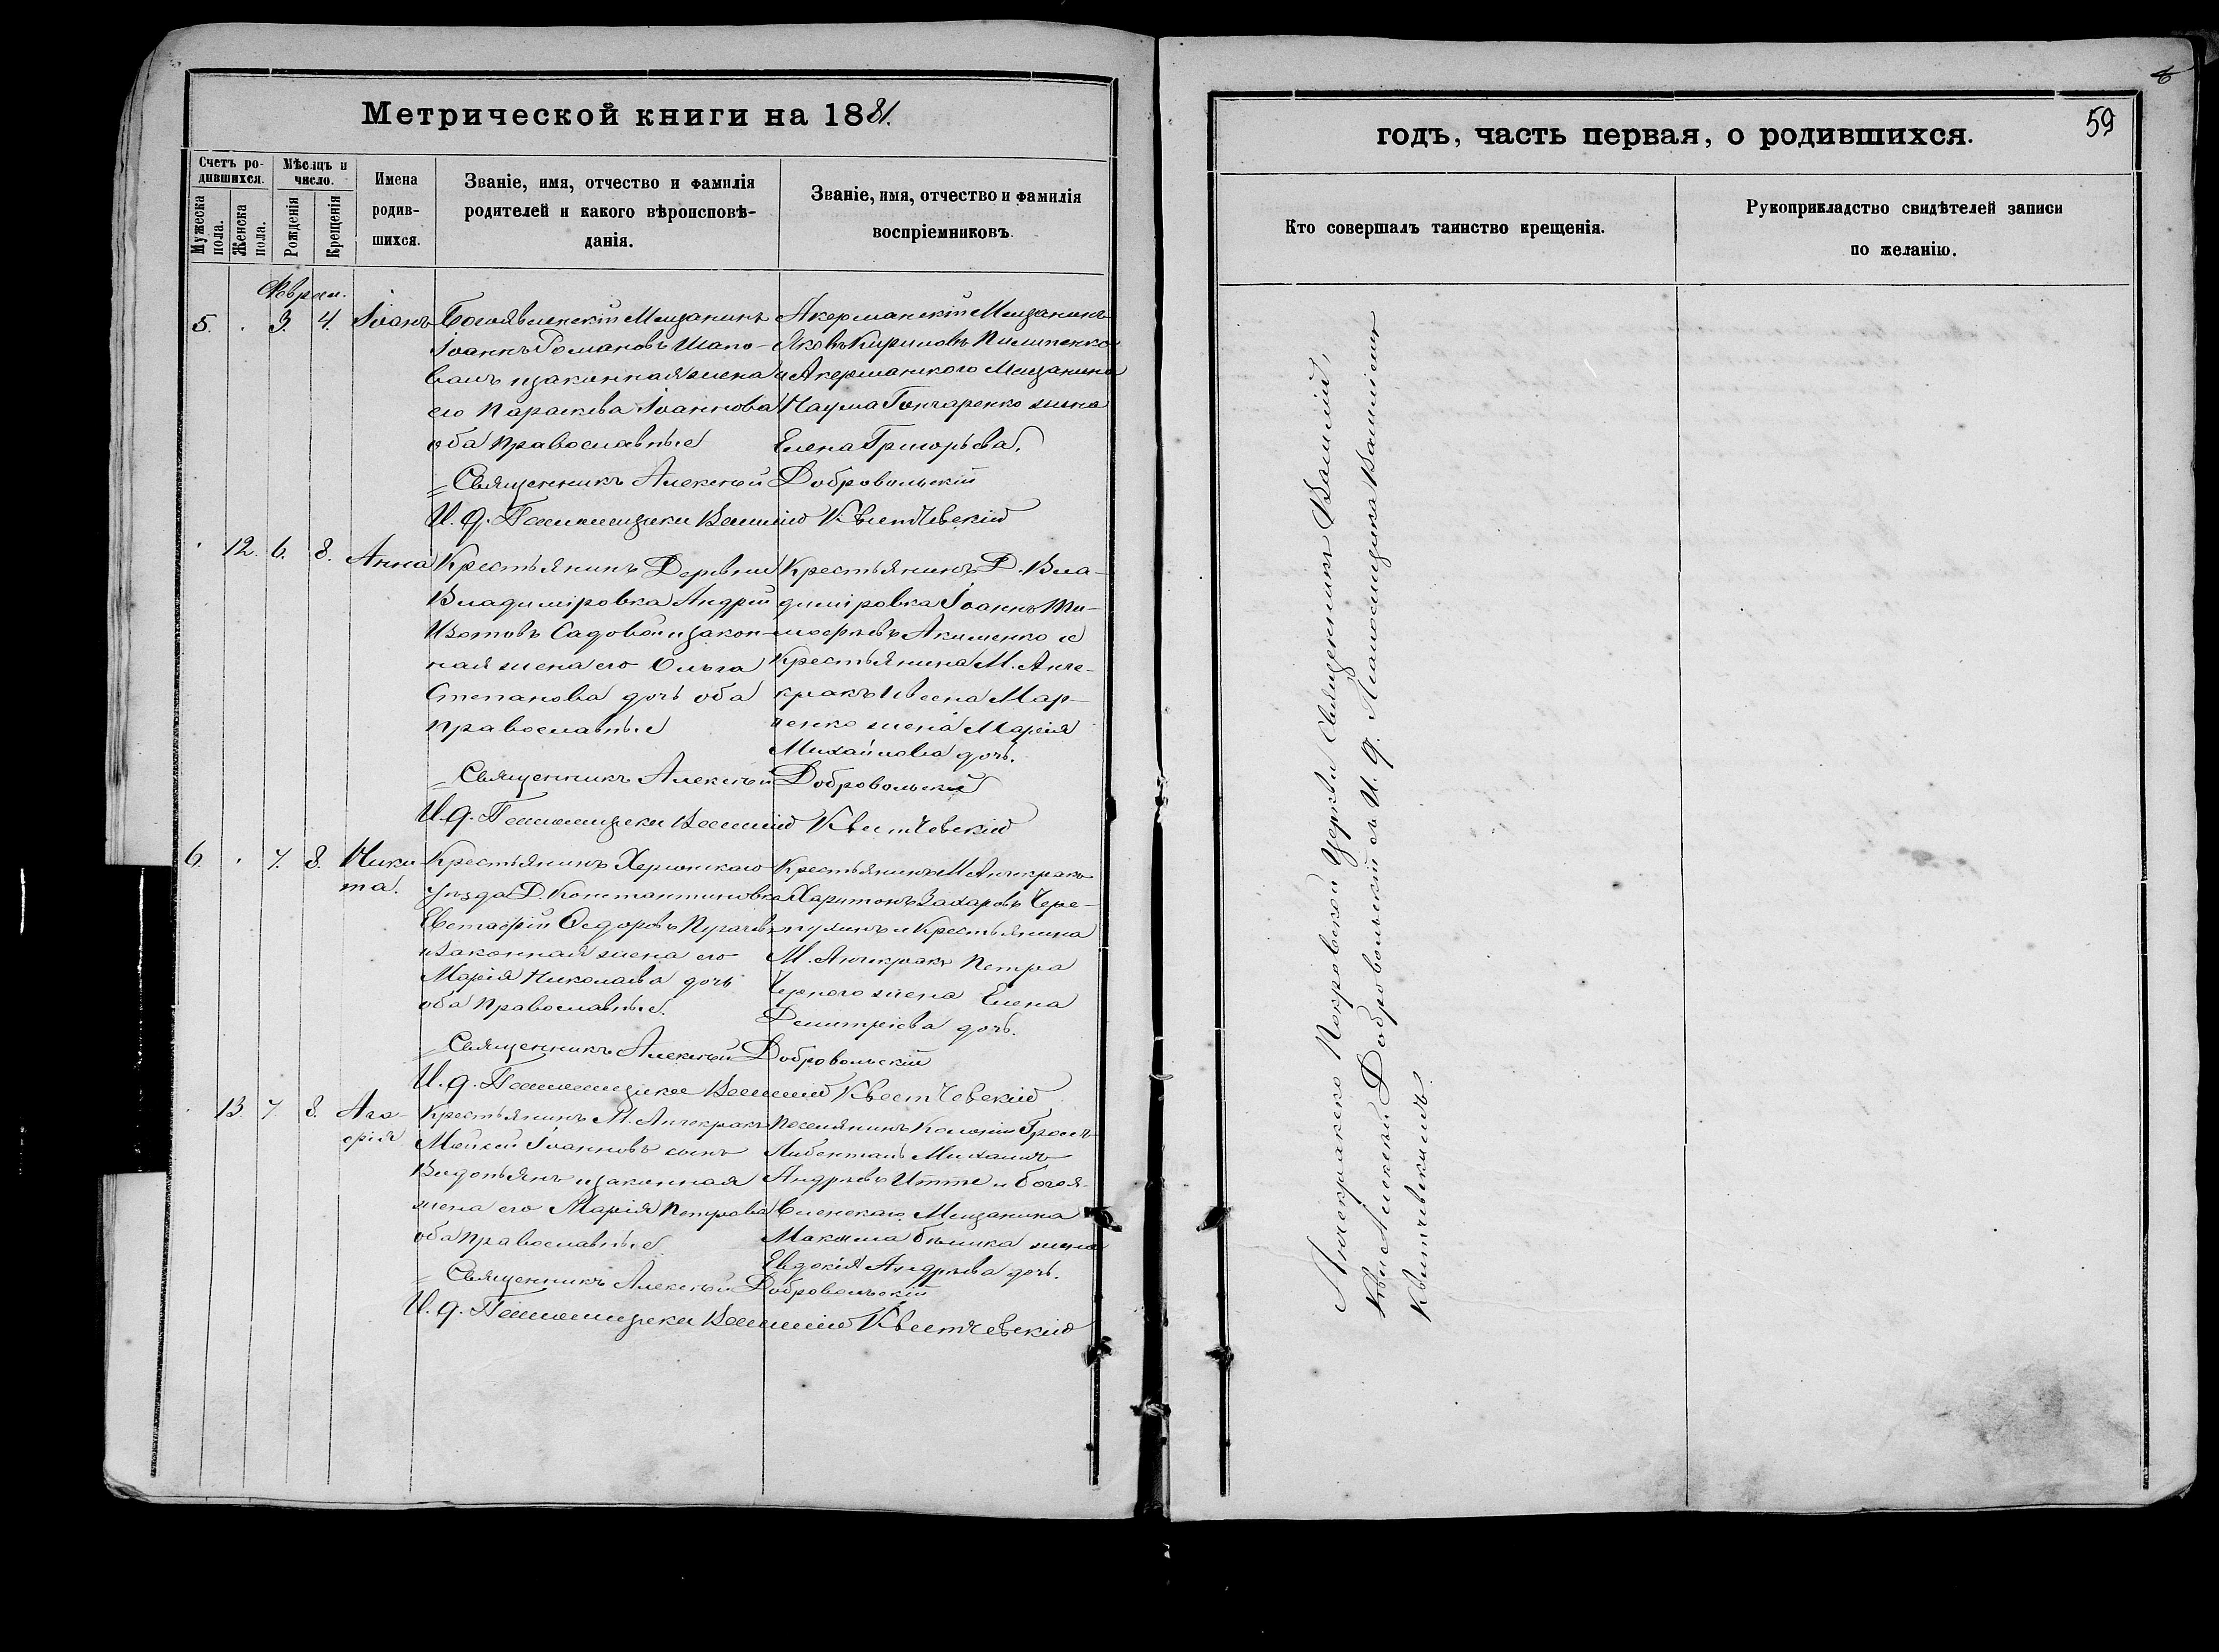 Метрической книги на 1881.
Счетъ ро-
дившихся.
Мѣсяцъ и
число.
Имена
родив-
шихся.
Званіе, имя, отчество и фамилія
родителей и какого вѣроисповѣ-
данія.
Званіе, имя, отчество и фамилія
воспріемниковъ.
Мужеска
пола.
Женска
пола.
Рожденія
Крещенія
Феврал.
5. 3. 4. Іоанъ
Богоявленскій Мещанинъ
Іоаннъ Романовъ Шапо-
валъ и законная жена
его Параскева Іоаннова
оба православные
Акерманскій Мещанинъ
Яковъ Кириловъ Пилипенко
и Акерманского Мещанина
Наума Гончаренко жена
Елена Григорьева.
Священникъ Алексѣй Добровольскій
И. д. Псаломщика Василій Квятчевскій
12. 6. 8. Анна
Крестьянинъ Деревни
Владиміровка Андрей
Изотовъ Садовой и закон-
ная жена его Ольга
Степанова дочь оба
православные
Крестьянинъ Д. Вла-
диміровка Іоаннъ Ти-
моѳеевъ Акименко и
Крестьянина М. Анче-
кракъ Мар-
ченко жена Марія
Михайлова дочь.
Священникъ Алексѣй Добровольскій
И. д. Псаломщика Василій Квятчевскій
6. 7. 8. Ники-
та.
Крестьянинъ Херсонскаго
уѣзда Д. Константиновка
Евстафій Ѳедоровъ Пугачевъ
и законная жена его
Марія Николаева дочь
оба православные.
Крестьянинъ М. Анчекракъ
Харитонъ Захаровъ Чере-
и Крестьянина
М. Анчекракъ Петра
Черного жена Елена
Демитріева дочь.
Священникъ Алексѣй Добровольскій
И. д. Псаломщика Василій Квятчевскій
13. 7. 8. Ага-
фія
Крестьянинъ М. Анчекракъ
Мойсей Іоанновъ сынъ
и законная
жена его Марія Петрова
оба православные
Поселянинъ Колоніи Гросъ-
Либенталь Михаилъ
Андреевъ Итте и Богоя-
вленскаго Мещанина
Максима Бѣлика жена
Евдокія Андреева дочь.
Священникъ Алексѣй Добровольскій
И. д. Псаломщика Василій Квятчевскій
59
годъ, часть первая, о родившихся.
Кто совершалъ таинство крещенія.
Рукоприкладство свидѣтелей записи
по желанію.
Анчекракско Покровской Церкви Священникъ Василій,
Алексѣй Добровольскій съ И. д. Псаломщика Василіемъ
Квятчевскимъ.